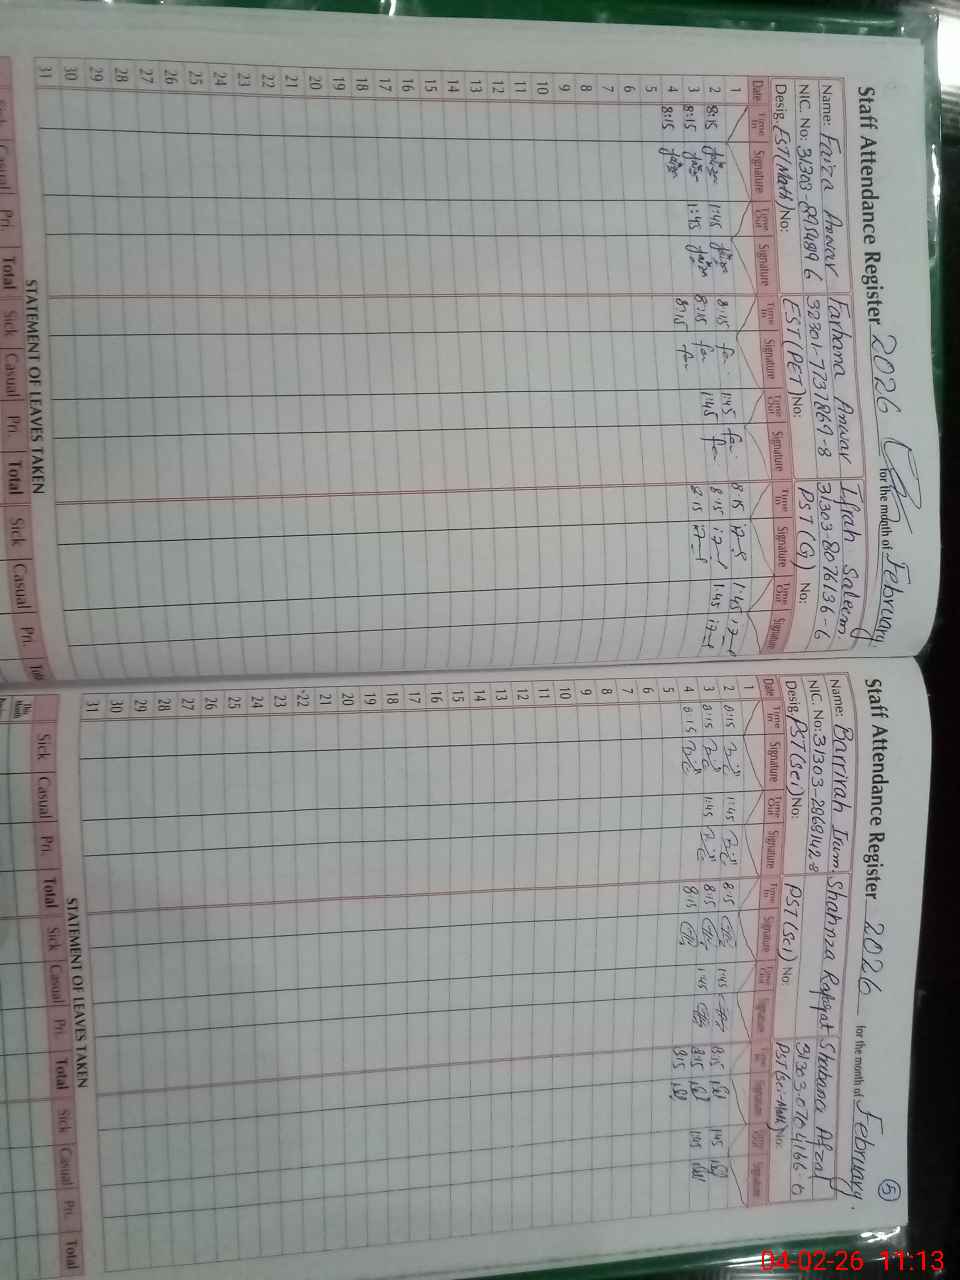 Staff Attendance Register 2026 for the month of February
Name: Faiza Anwar Farhana Anwar Ifrah Saleem
NIC. No: 31303-8954899 6 32301-7737869-8 31303-8076136-6
Desig. EST(Math) No: EST(PET) No: PST(G) No:
Date Time In Signature Time Out Signature Time In Signature Time Out Signature Time In Signature Time Out Signature
1
2 8:15 1:45 8:15 1:45 8:15 1:45
3 8:15 1:45 8:15 1:45 8:15 1:45
4 8:15 8:15 8:15
5
6
7
8
9
10
11
12
13
14
15
16
17
18
19
20
21
22
23
24
25
26
27
28
29
30
31
STATEMENT OF LEAVES TAKEN
Casual Pri. Total Sick Casual Pri. Total Sick Casual Pri.
Staff Attendance Register 2026 for the month of February 5
Name: Barrirah Iram Shahnza Rafaqat Shabana Afzal
NIC. No: 31303-2869142-8 31303-0704166-0
Desig. PST(Sci) No: PST(Sci) No: PST(Sci-Math) No:
Date Time In Signature Time Out Signature Time In Signature Time Out Signature Time In Signature Time Out Signature
1
2 8:15 1:45 8:15 1:45 8:15 1:45
3 8:15 1:45 8:15 1:45 8:15 1:45
4 8:15 8:15 8:15
5
6
7
8
9
10
11
12
13
14
15
16
17
18
19
20
21
22
23
24
25
26
27
28
29
30
31
STATEMENT OF LEAVES TAKEN
Sick Casual Pri. Total Sick Casual Pri. Total Sick Casual Pri. Total
04-02-26 11:13